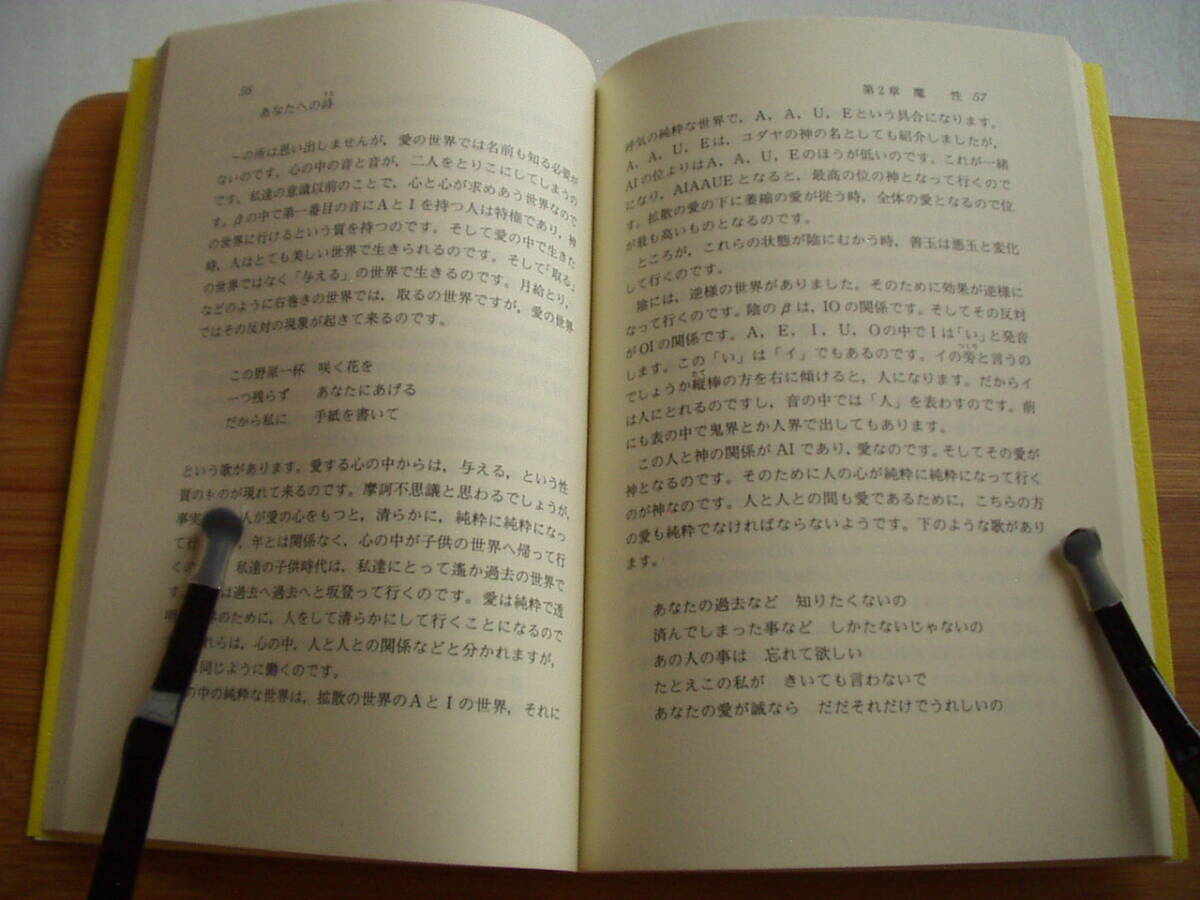 56
あなたへの詩
うた
〜の所は思い出しませんが，愛の世界では名前も知る必要が
ないのです。心の中の音と音が，二人をとりこにしてしまうの
です。私達の意識以前のことで，心と心が求めあう世界なので
す。βの中で第一番目の音にAとIを持つ人は特権であり，神
の世界に行けるという質を持つのです。そして愛の中で生きた
時，人はとても美しい世界で生きられるのです。そして「取る」
の世界ではなく「与える」の世界で生きるのです。月給とり，
などのように右巻きの世界では，取るの世界ですが，愛の世界
ではその反対の現象が起きて来るのです。
この野原一杯　咲く花を
一つ残らず　あなたにあげる
だから私に　手紙を書いて
という歌があります。愛する心の中からは，与える，という性
質のものが現れて来るのです。摩訶不思議と思わるでしょうが，
事実 人が愛の心をもつと，清らかに，純粋に純粋になっ
て行 ，年とは関係なく，心の中が子供の世界へ帰って行
くの 私達の子供時代は，私達にとって遙か過去の世界で
す。 は過去へ過去へと坂登って行くのです。愛は純粋で透
明 のために，人をして清らかにして行くことになるので
れらは，心の中，人と人との関係などと分かれますが，
同じように働くのです。
の中の純粋な世界は，拡散の世界のAとIの世界，それに
第2章　魔　性　57
呼気の純粋な世界で，A，A，U，Eという具合になります。
A，A，U，Eは，ユダヤの神の名としても紹介しましたが，
AIの位よりはA，A，U，Eのほうが低いのです。これが一緒
になり，AIAAUEとなると，最高の位の神となって行くので
す。拡散の愛の下に萎縮の愛が従う時，全体の愛となるので位
が最も高いものとなるのです。
ところが，これらの状態が陰にむかう時，善玉は悪玉と変化
して行くのです。
陰には，逆様の世界がありました。そのために効果が逆様に
なって行くのです。陰のβは，IOの関係です。そしてその反対
がOIの関係です。A，E，I，U，Oの中でIは「い」と発音
します。この「い」は「イ」でもあるのです。イの旁と言うの
つくり
でしょうか縦棒の方を右に傾けると，人になります。だからイ
たて
は人にとれるのですし，音の中では「人」を表わすのです。前
にも表の中で鬼界とか人界で出してもあります。
この人と神の関係がAIであり，愛なのです。そしてその愛が
神となるのです。そのために人の心が純粋に純粋になって行く
のが神なのです。人と人との間も愛であるために，こちらの方
の愛も純粋でなければならないようです。下のような歌があり
ます。
あなたの過去など　知りたくないの
済んでしまった事など　しかたないじゃないの
あの人の事は　忘れて欲しい
たとえこの私が　きいても言わないで
あなたの愛が誠なら　だだそれだけでうれしいの